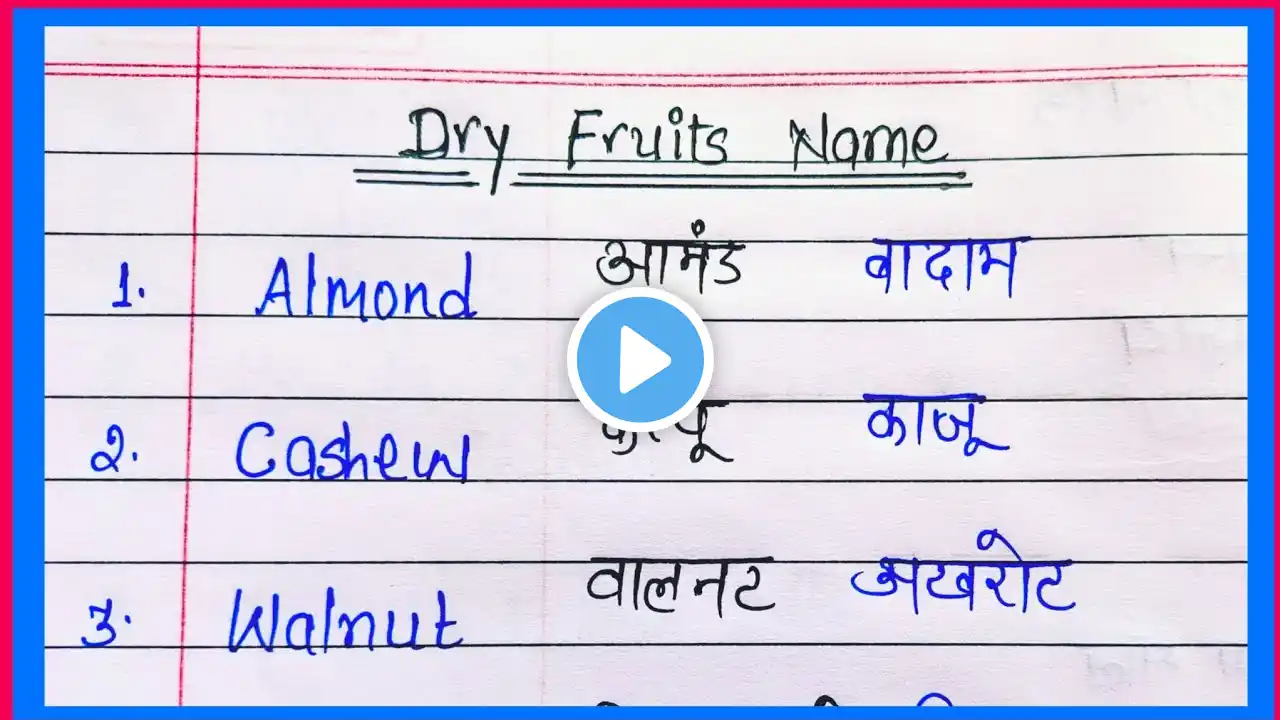 Dry Fruits Name
1. Almond आमंड बादाम
2. Cashew काजू
3. Walnut वालनट अखरोट